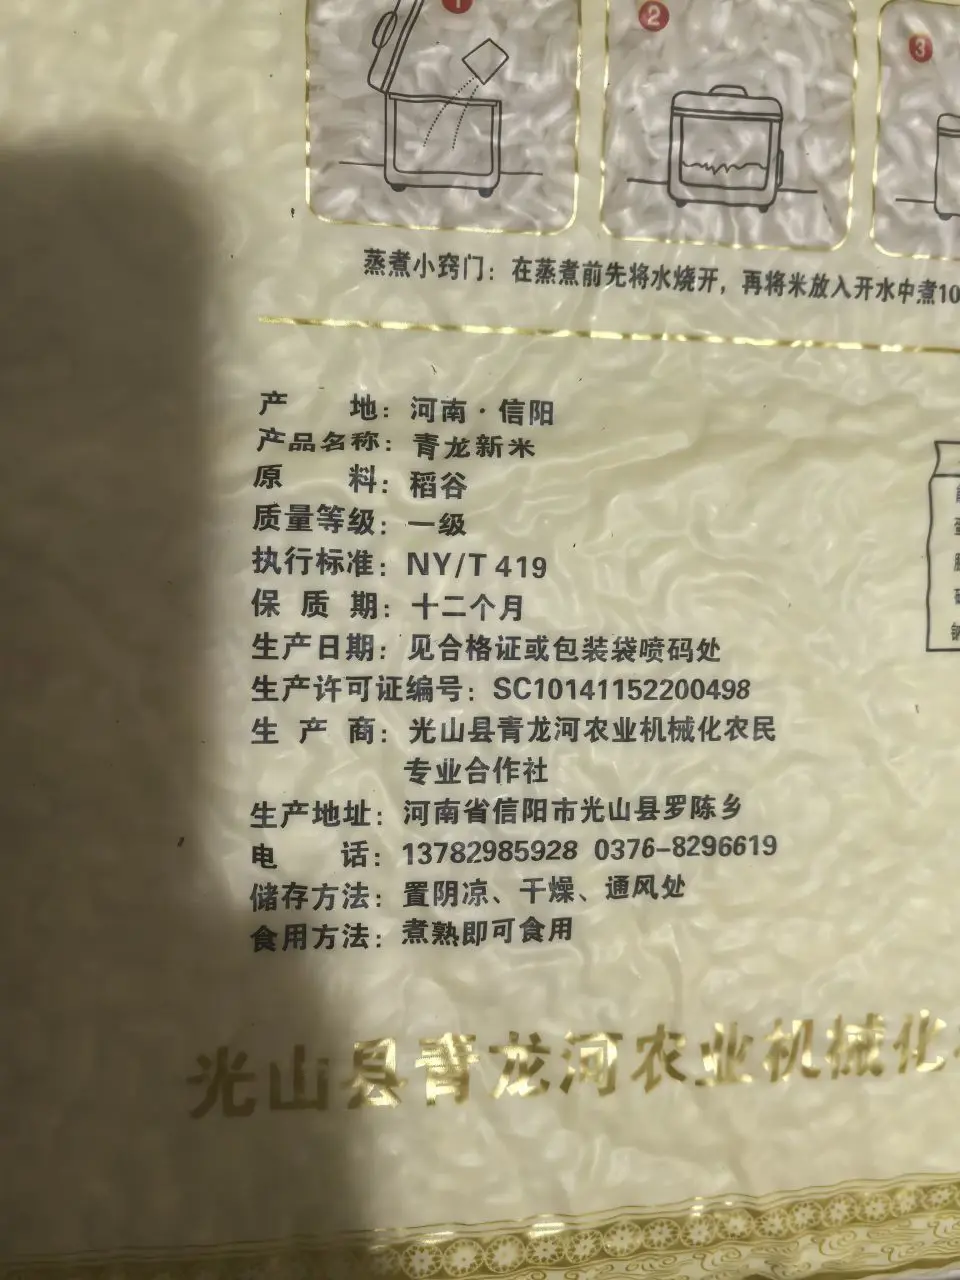 1
2
3
蒸煮小窍门：在蒸煮前先将水烧开，再将米放入开水中煮10
产地：河南·信阳
产品名称：青龙新米
原料：稻谷
质量等级：一级
执行标准：NY/T 419
保质期：十二个月
生产日期：见合格证或包装袋喷码处
生产许可证编号：SC10141152200498
生产商：光山县青龙河农业机械化农民
专业合作社
生产地址：河南省信阳市光山县罗陈乡
电话：13782985928 0376-8296619
储存方法：置阴凉、干燥、通风处
食用方法：煮熟即可食用
光山县青龙河农业机械化